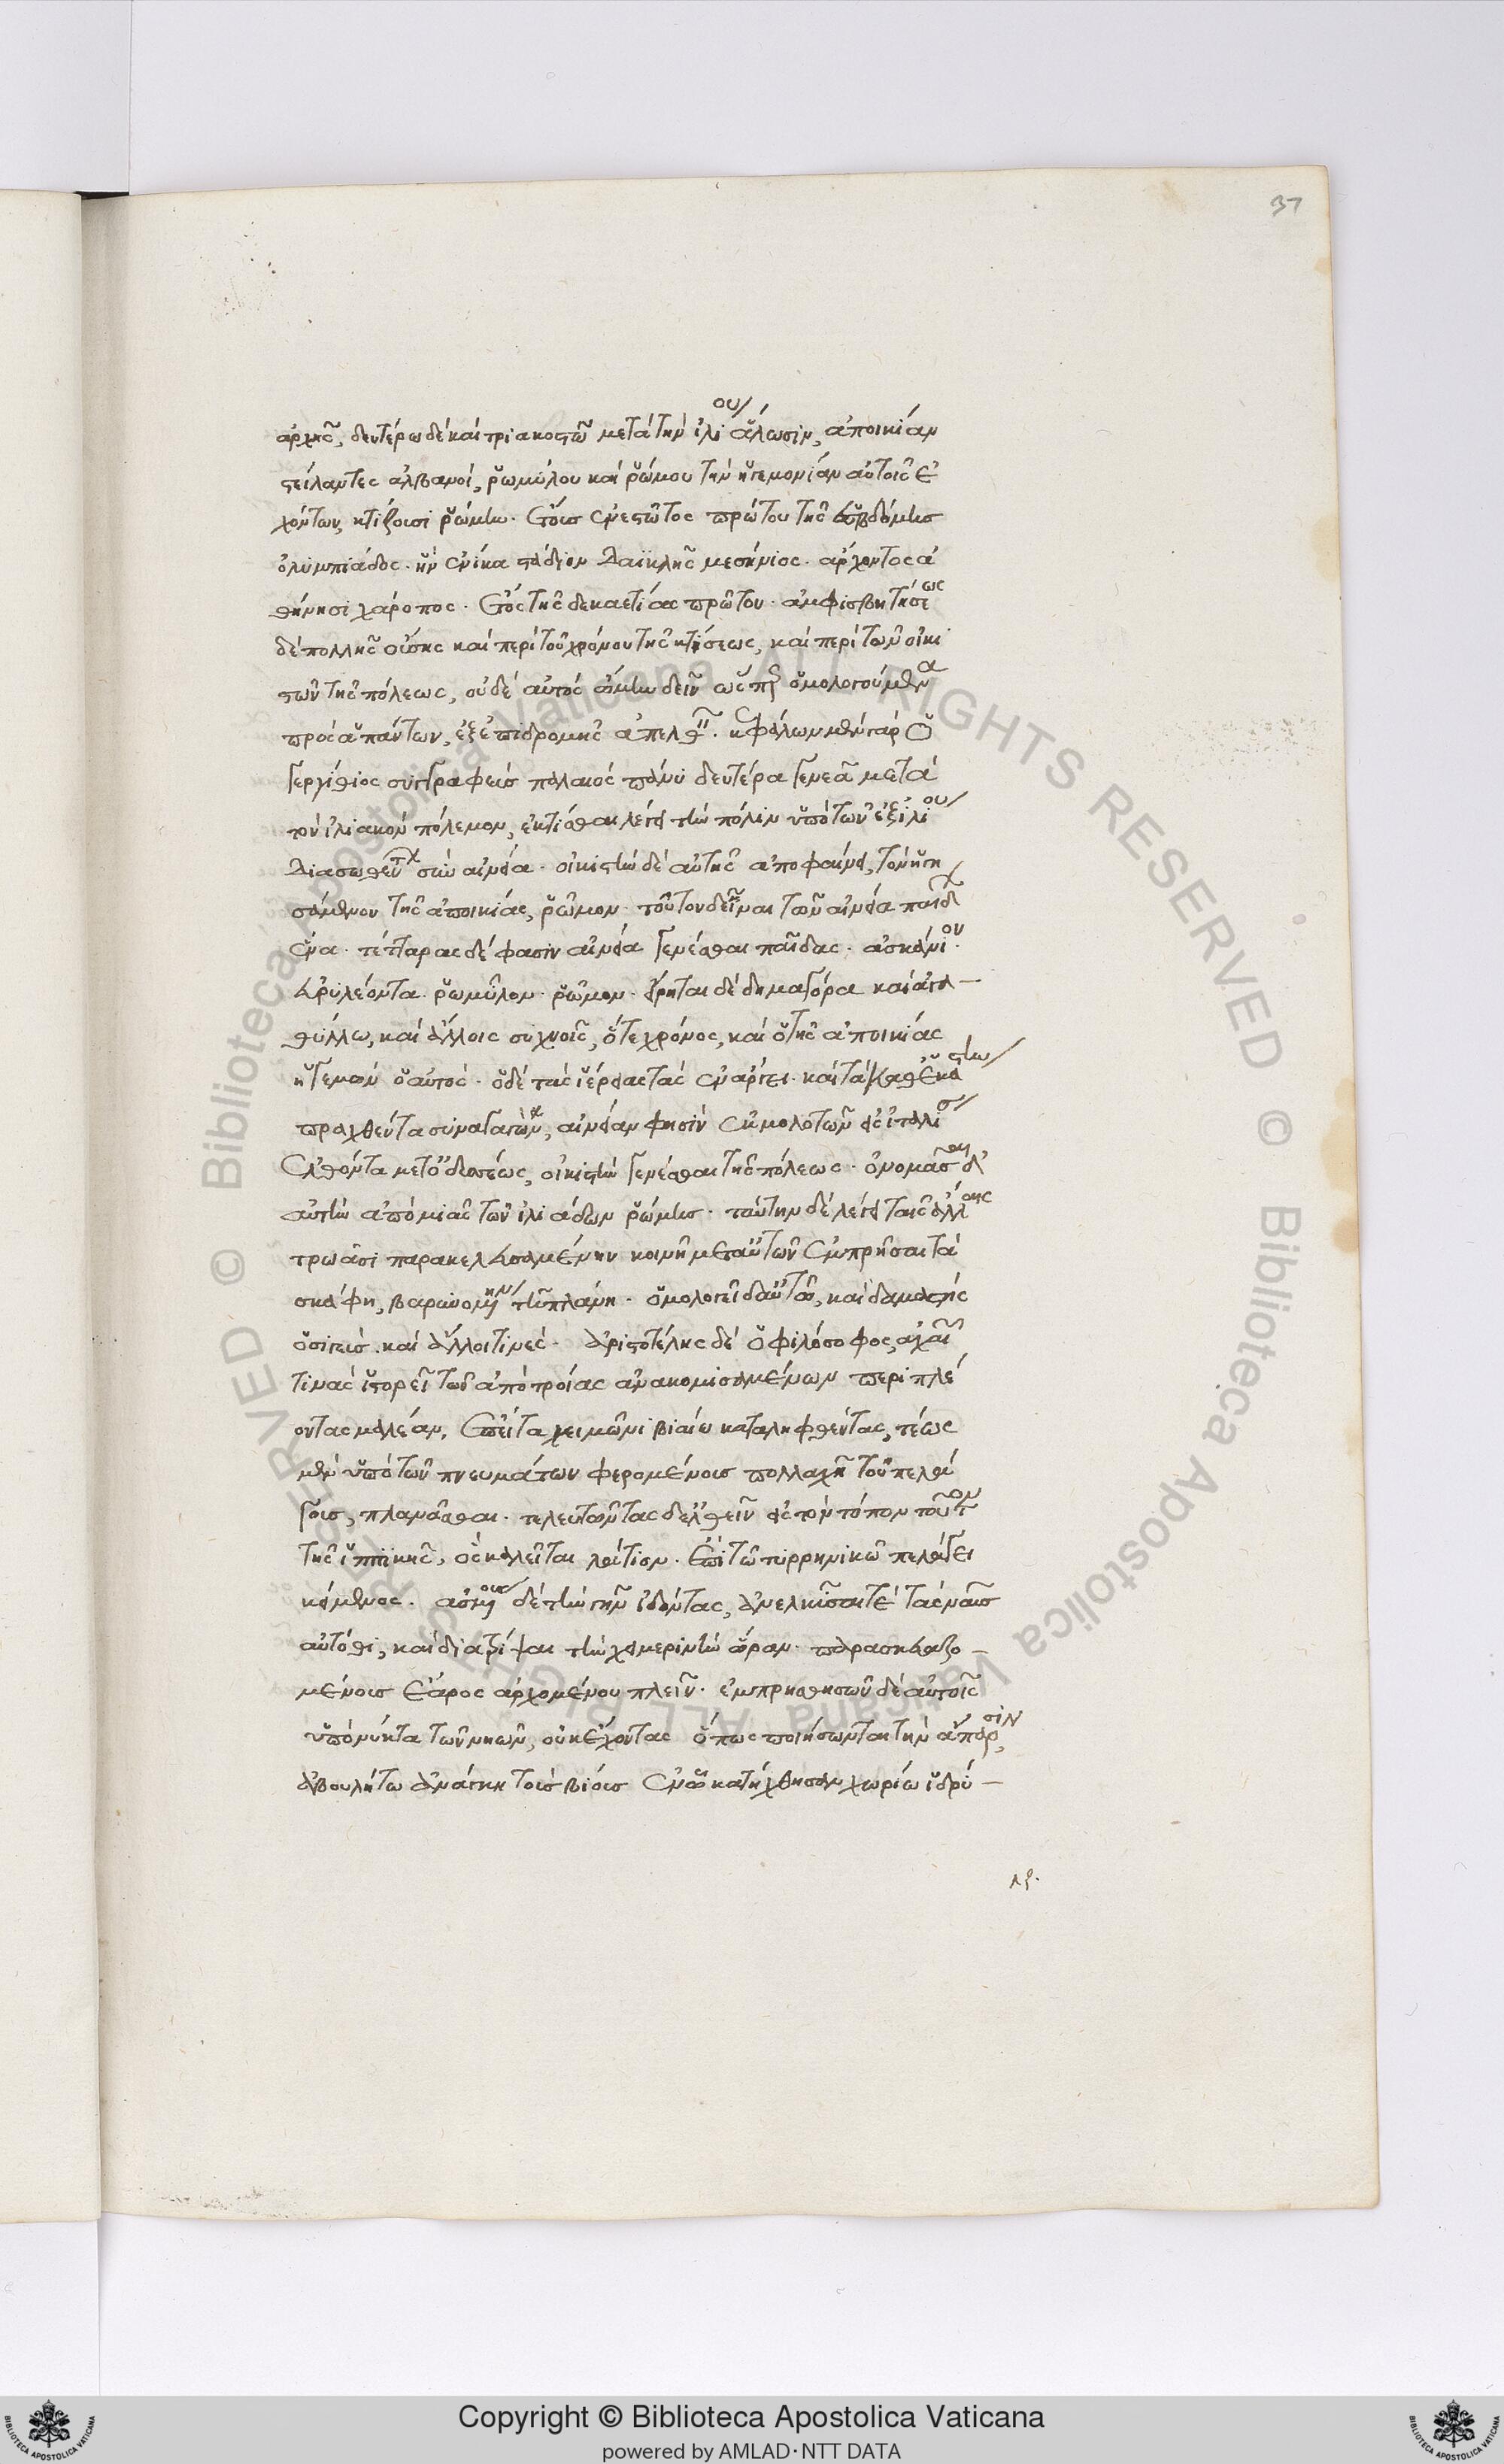 37
ἀρχῆς, δευτέρω δὲ καὶ τριακοστῶ μετὰ τὴν ἰλίου ἅλωσιν, ἀποικίαν
στείλαντες ἀλβανοὶ, ῥωμύλου καὶ ῥώμου τὴν ἡγεμονίαν αὐτοῖς ἐ
χόντων, κτίζουσι ῥώμην. ἔτους ἐνεστῶτος πρώτου τῆς ἑβδόμης
ὀλυμπιάδος. ἣν ἐνίκα στάδιον δαϊκλῆς μεσήνιος. ἄρχοντος ἀ
θήνησι χάροπος. ἔτος τῆς δεκαετίας πρῶτον. ἀμφισβητήσεως
δὲ πολλῆς οὔσης καὶ περὶ τοῦ χρόνου τῆς κτίσεως, καὶ περὶ τῶν οἰκι
στῶν τῆς πόλεως, οὐδὲ αὐτὸς ᾤμην δεῖν ὥσπερ ὁμολογούμενα
πρὸς ἁπάντων, ἐξ ἐπιδρομῆς ἀπελθεῖν. κεφάλων μὲν γὰρ ὁ
γεργίθιος συγγραφεὺς παλαιὸς πάνυ δευτέρα γενεᾶ μετὰ
τὸν ἰλιακὸν πόλεμον, ἐκτίσθαι λέγει τὴν πόλιν ὑπὸ τῶν ἐξ ἰλίου
διασωθέντων σὺν αἰνεία. οἰκιστὴν δὲ αὐτῆς ἀποφαίνει, τὸν ἡγη
σάμενον τῆς ἀποικίας, ῥῶμον. τοῦτον δ εἶναι τῶν αἰνεία παίδων
ἕνα. τέτταρας δέ φασιν αἰνεία γενέσθαι παῖδας. ἀσκάνιον.
εὐρυλέοντα. ῥωμύλον. ῥῶμον. εἴρηται δὲ δημαγόρα καὶ ἀγα
θύλλω, καὶ ἄλλοις συχνοῖς, ὅ τε χρόνος, καὶ ὁ τῆς ἀποικίας
ἡγεμὼν ὁ αὐτός. ὁ δὲ τὰς ἱερείας τὰς ἐν ἄργει. καὶ τὰ καθ ἑκάστην
πραχθέντα συναγαγὼν, αἰνείαν φησὶν ἐκ μολοττῶν εἰς ἰταλίαν
ἐλθόντα μετ ὀδυσσέως, οἰκιστὴν γενέσθαι τῆς πόλεως. ὀνομάσαι δ
αὐτὴν ἀπὸ μιᾶς τῶν ἰλιάδων ῥώμης. ταύτην δὲ λέγει ταῖς ἄλλαις
τρωάσι παρακελευσαμένην κοινῆ μετ αὐτῶν ἐμπρῆσαι τὰ
σκάφη, βαρυνομένην τῆ πλάνη. ὁμολογεῖ δ αὐτῶ, καὶ δαμάστης
ὁ σιγεὺς. καὶ ἄλλοι τινές. ἀριστοτέλης δὲ ὁ φιλόσοφος, ἀχαιῶν
τινὰς ἱστορεῖ τῶν ἀπὸ τροίας ἀνακομισαμένων περιπλέ
οντας μαλέαν, ἔπειτα χειμῶνι βιαίω καταληφθέντας, τέως
μὲν ὑπὸ τῶν πνευμάτων φερομένους πολλαχῆ τοῦ πελά
γους, πλανᾶσθαι. τελευτῶντας δ ἐλθεῖν εἰς τὸν τόπον τοῦτον
τῆς ὀπικῆς, ὃς καλεῖται λάτιον. ἐπὶ τῶ τυρρηνικῶ πελάγει
κείμενος. ἀσμένους δὲ τὴν γῆν ἰδόντας, ἀνελκῦσαί τε τὰς ναῦς
αὐτόθι, καὶ διατρῖψαι τὴν χειμερινὴν ὥραν. παρασκευαζο
μένους ἔαρος ἀρχομένου πλεῖν. ἐμπρησθησῶν δὲ αὐτοῖς
ὑπὸ νύκτα τῶν νηῶν, οὐκ ἔχοντας ὅπως ποιήσωνται τὴν ἄπαρσιν,
ἀβουλήτω ἀνάγκη τοὺς βίους ἐν ᾧ κατήχθησαν χωρίω ἱδρύ